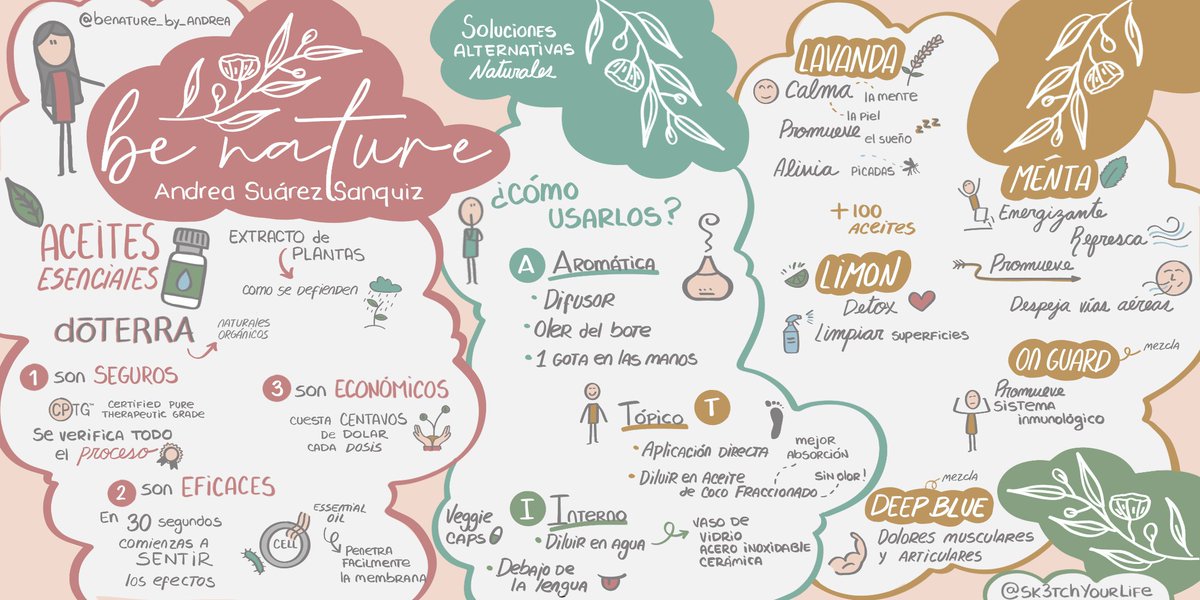 @benature_by_andrea
be nature
Andrea Suárez Sanquiz
ACEITES
ESENCIALES
EXTRACTO de
PLANTAS
COMO SE DEFIENDEN
dōTERRA
NATURALES
ORGÁNICOS
1 SON SEGUROS
CPTG™ CERTIFIED PURE
THERAPEUTIC GRADE
SE VERIFICA TODO
EL PROCESO
3 SON ECONÓMICOS
CUESTA CENTAVOS
DE DOLAR
CADA DOSIS
2 SON EFICACES
En 30 SEGUNDOS
COMIENZAS A
SENTIR
los EFECTOS
ESSENTIAL
OIL
CELL
PENETRA
FACILMENTE
LA MEMBRANA
SOLUCIONES
ALTERNATIVAS
Naturales
¿CÓMO
USARLOS?
A AROMÁTICA
• DIFUSOR
• OLER DEL BOTE
• 1 GOTA EN LAS MANOS
TÓPICO T
• APLICACIÓN DIRECTA
MEJOR
ABSORCIÓN
• DILUIR EN ACEITE
DE COCO FRACCIONADO
SIN OLOR!
I INTERNO
VEGGIE
CAPS
• DILUIR EN AGUA
VASO DE
VIDRIO
ACERO INOXIDABLE
CERÁMICA
• DEBAJO DE
LA LENGUA
LAVANDA
Calma LA MENTE
LA PIEL
Promueve EL SUEÑO ZZZ
Alivia PICADAS
+100
ACEITES
LIMON
Detox
Limpiar SUPERFICIES
MENTA
Energizante
Refresca
Promueve
Despeja vías aéreas
ON GUARD
MEZCLA
Promueve
SISTEMA
INMUNOLÓGICO
MEZCLA
DEEP BLUE
DOLORES MUSCULARES
Y ARTICULARES
@SK3TCHYOURLIFE